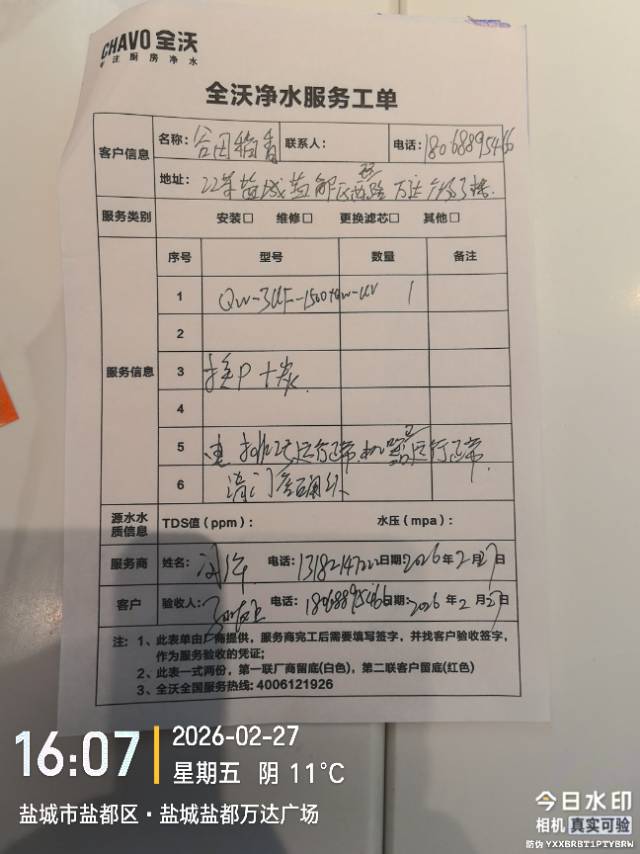 CHAVO 全沃
专注厨房净水
全沃净水服务工单
客户信息
名称：谷田稻香 联系人： 电话：18068895466
地址：盐城盐都区 路万达广场3楼
服务类别 安装□ 维修□ 更换滤芯□ 其他□
服务信息
序号 型号 数量 备注
1 QW-3UF-1500+QW-UV 1
2
3 换P+炭
4
5 电 运行正常.机器运行正常
6 请门店确认
源水水质信息 TDS值（ppm）： 水压（mpa）：
服务商 姓名： 电话：13182147222 日期：2026年2月27日
客户 验收人： 电话：18068895466 日期：2026年2月27日
注：1、此表单由厂商提供，服务商完工后需要填写签字，并找客户验收签字，
作为服务验收的凭证；
2、此表一式两份，第一联厂商留底(白色)，第二联客户留底(红色)
3、全沃全国服务热线：4006121926
16:07
2026-02-27
星期五 阴 11℃
盐城市盐都区·盐城盐都万达广场
今日水印
相机 真实可验
防伪 YXXBRBT1PTYBRW